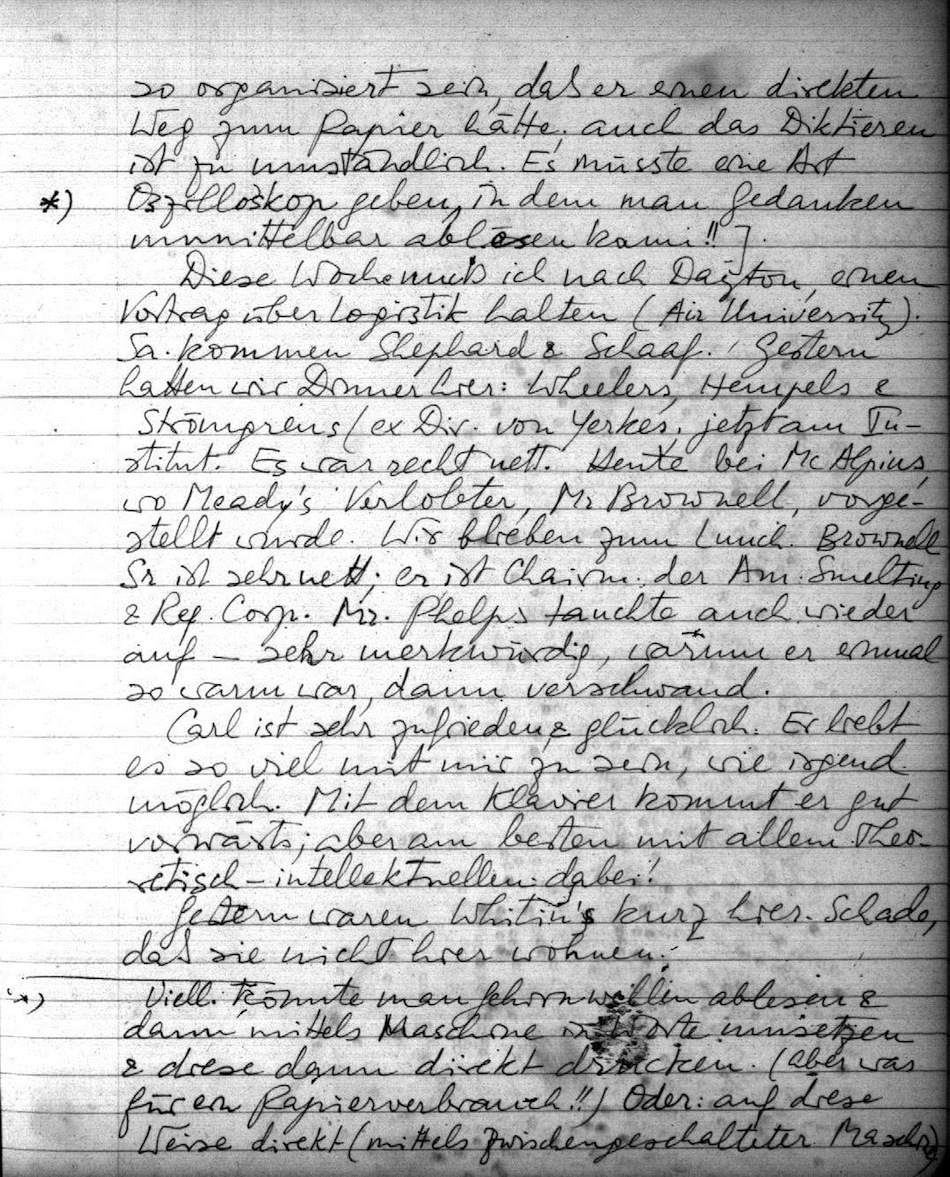 so organisiert sein, daß er einen direkten
Weg zum Papier hätte; auch das Diktieren
ist zu umständlich. Es müsste eine Art
*) Oszilloskop geben, in dem man Gedanken
unmittelbar ablesen kann!! ].
Diese Woche muß ich nach Dayton, einen
Vortrag über Logistik halten (Air University).
Sa. kommen Shephard & Schaaf. Gestern
hatten wir Dinner hier: Wheelers, Hempels &
Strömgrens (ex Dir. von Yerkes, jetzt am In-
stitut. Es war recht nett. Heute bei McAlpins,
wo Meady's Verlobter, Mr Brownell, vorge-
stellt wurde. Wir blieben zum Lunch. Brownell
Sr ist sehr nett; er ist Chairm. der Am. Smelting
& Ref. Corp. Mr. Phelps tauchte auch wieder
auf – sehr merkwürdig, warum er einmal
so warm war, dann verschwand.
Carl ist sehr zufrieden & glücklich. Er liebt
es so viel mit mir zu sein, wie irgend
möglich. Mit dem Klavier kommt er gut
vorwärts; aber am besten mit allem Theo-
retisch-intellektuellen dabei!
Gestern waren Whitin's kurz hier. Schade,
daß sie nicht hier wohnen.
*) Viell. könnte man Gehirnwellen ablesen &
dann mittels Maschine in Worte umsetzen
& diese dann direkt drucken. (aber was
für ein Papierverbrauch!!) Oder: auf diese
Weise direkt (mittels zwischengeschalteter Masch.)